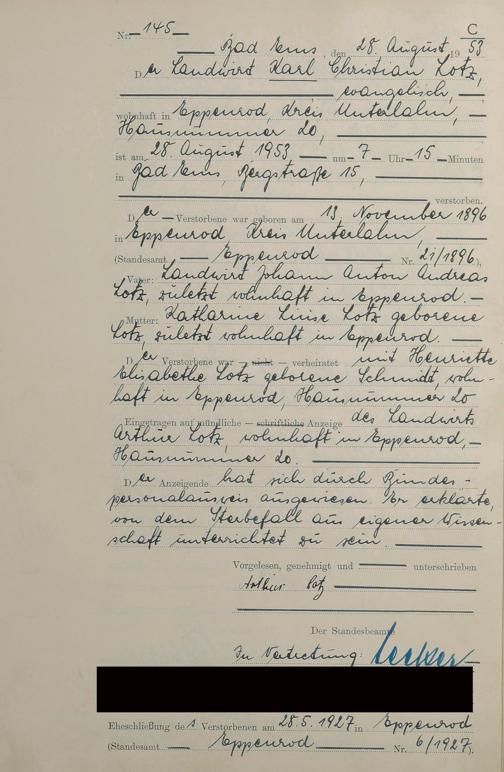 C
Nr. 145 53
Bad Ems, den 28. August 19
Der Landwirt Karl Christian Lotz,
evangelisch,
wohnhaft in Eppenrod, Kreis Unterlahn,
Hausnummer 20,
ist am 28. August 1953 um 7 Uhr 15 Minuten
in Bad Ems, Bergstraße 15,
verstorben.
Der Verstorbene war geboren am 13. November 1896
in Eppenrod, Kreis Unterlahn,
(Standesamt Eppenrod Nr. 21/1896),
Vater: Landwirt Johann Anton Andreas
Lotz, zuletzt wohnhaft in Eppenrod.
Mutter: Katharine Luise Lotz geborene
Lotz, zuletzt wohnhaft in Eppenrod.
Der Verstorbene war — nicht — verheiratet mit Henriette
Elisabethe Lotz geborene Schmidt, wohn-
haft in Eppenrod, Hausnummer 20
Eingetragen auf mündliche — schriftliche Anzeige des Landwirts
Arthur Lotz, wohnhaft in Eppenrod,
Hausnummer 20.
Der Anzeigende hat sich durch Bundes-
personalausweis ausgewiesen. Er erklärte,
von dem Sterbefall aus eigener Wissen-
schaft unterrichtet zu sein.
Vorgelesen, genehmigt und unterschrieben
Arthur Lotz
Der Standesbeamte
In Vertretung:
Eheschließung des Verstorbenen am 28.5.1927 in Eppenrod
(Standesamt Eppenrod Nr. 6/1927).